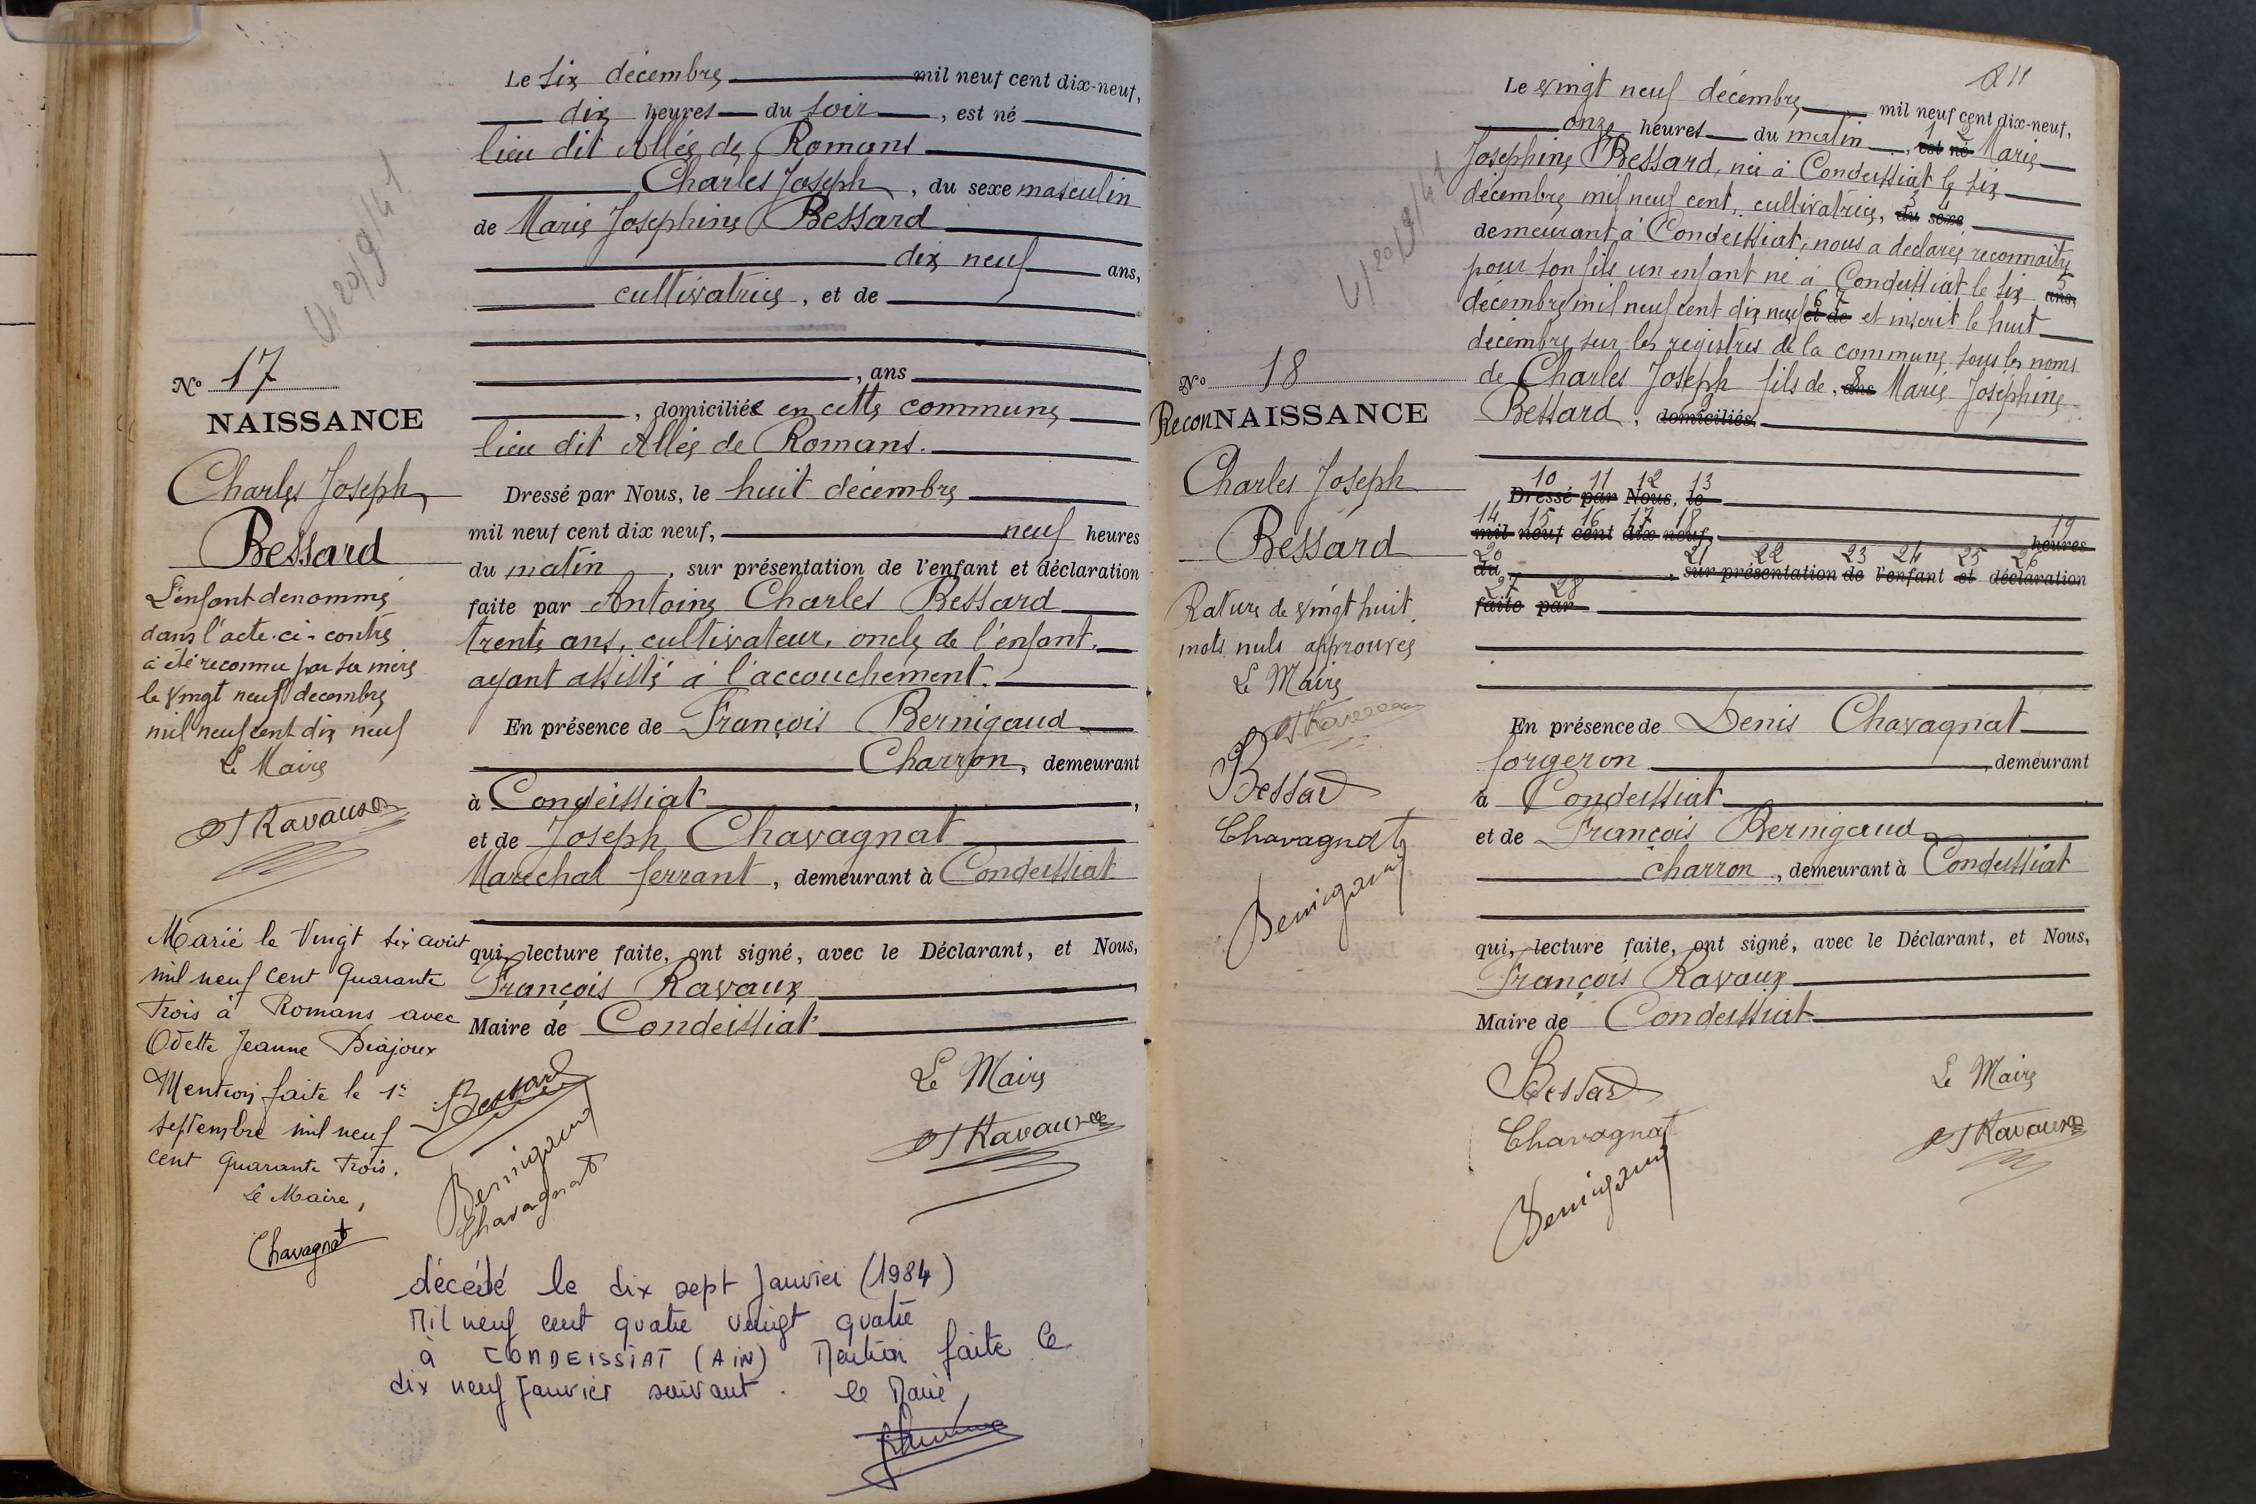 Le six décembre mil neuf cent dix-neuf,
dix heures du soir, est né
lieu dit Allée de Romans
Charles Joseph, du sexe masculin
de Marie Josephine Bessard
dix neuf ans,
cultivatrice, et de
, ans
, domiciliée en cette commune
lieu dit Allée de Romans.
Dressé par Nous, le huit décembre
mil neuf cent dix neuf, neuf heures
du matin, sur présentation de l'enfant et déclaration
faite par Antoine Charles Bessard
trente ans, cultivateur, oncle de l'enfant,
ayant assisté à l'accouchement.
En présence de François Bernigaud
Charron, demeurant
à Condeissiat,
et de Joseph Chavagnat
Marechal ferrant, demeurant à Condeissiat
qui, lecture faite, ont signé, avec le Déclarant, et Nous,
François Ravaux
Maire de Condeissiat
Le Maire
Bessard
Ravaux
Bernigaud
Chavagnat
V, 20/9/41
No 17
NAISSANCE
Charles Joseph
Bessard
L'enfant dénommé
dans l'acte ci-contre
a été reconnu par sa mère
le vingt neuf décembre
mil neuf cent dix neuf
Le Maire
Ravaux
Marié le Vingt six août
mil neuf cent Quarante
Trois à Romans avec
Odette Jeanne Biajoux
Mention faite le 1er
septembre mil neuf
cent Quarante Trois.
Le Maire,
Chavagnat
décédé le dix sept Janvier (1984)
Mil neuf cent quatre vingt quatre
à CONDEISSIAT (AIN) Mention faite le
dix neuf Janvier suivant. le Maire
211
Le vingt neuf décembre mil neuf cent dix-neuf,
onze heures du matin, est né Marie
1 2
Josephine Bessard, née à Condeissiat le six
décembre mil neuf cent, cultivatrice, du sexe
3 4
demeurant à Condeissiat, nous a déclaré reconnaître
pour son fils un enfant né à Condeissiat le six ans,
5
décembre mil neuf cent dix neuf et de et inscrit le huit
6 7
décembre sur les registres de la commune sous les noms
de Charles Joseph fils de, ans Marie Joséphine
8
Bessard, domiciliés
9
10 11 12 13
Dressé par Nous, le
14 15 16 17 18 19
mil neuf cent dix neuf, heures
20 21 22 23 24 25 26
du, sur présentation de l'enfant et déclaration
27 28
faite par
En présence de Denis Chavagnat
forgeron, demeurant
à Condeissiat
et de François Bernigaud
charron, demeurant à Condeissiat
qui, lecture faite, ont signé, avec le Déclarant, et Nous,
François Ravaux
Maire de Condeissiat
Bessard
Le Maire
Chavagnat
Ravaux
Bernigaud
V, 20/9/41
No 18
ReconNAISSANCE
Charles Joseph
Bessard
Rature de vingt huit
mots nuls approuvée
Le Maire
Ravaux
Bessard
Chavagnat
Bernigaud